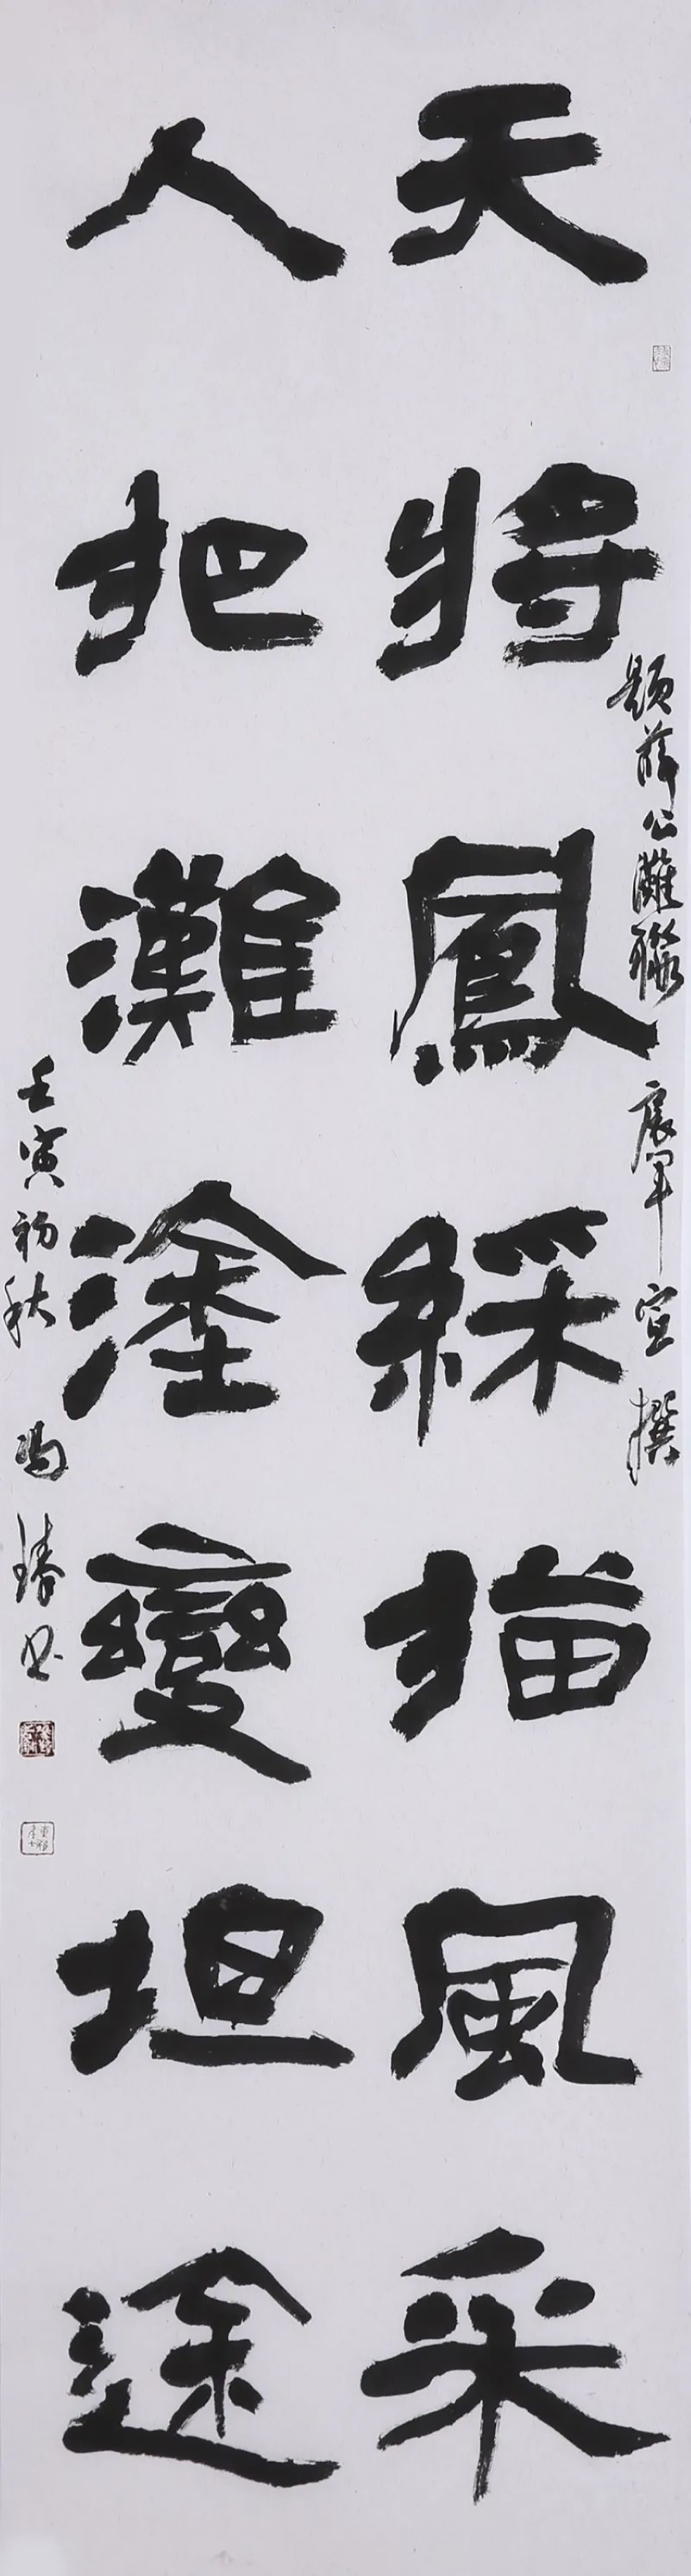 天將鳳綵描風采
人把灘塗變坦途
題薛公灘聯 宣撰
壬寅初秋 馮臻書